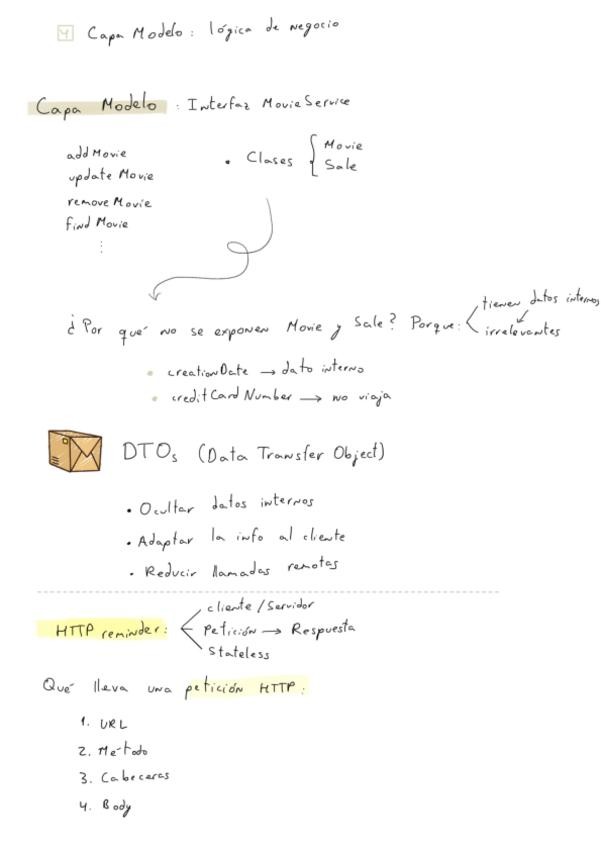 4 Capa Modelo: lógica de negocio
Capa Modelo: Interfaz MovieService
add Movie
update Movie
remove Movie
find Movie
⋮
• Clases { Movie
Sale
¿Por qué no se exponen Movie y Sale? Porque:
tienen datos internos
irrelevantes
• creationDate → dato interno
• creditCardNumber → no viaja
DTOs (Data Transfer Object)
• Ocultar datos internos
• Adaptar la info al cliente
• Reducir llamadas remotas
HTTP reminder:
cliente/Servidor
Petición → Respuesta
Stateless
Qué lleva una petición HTTP:
1. URL
2. Método
3. Cabeceras
4. Body